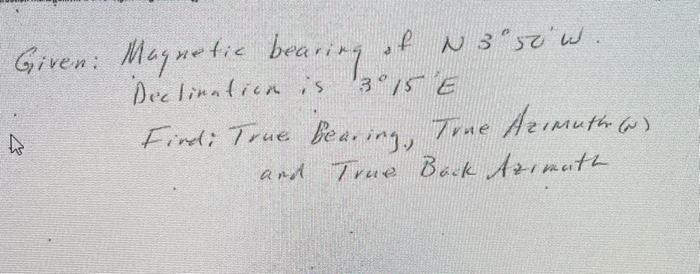 Given: Magnetic bearing of N 3°50' W.
Declination is 3°15' E
Find: True Bearing, True Azimuth (N)
and True Back Azimuth